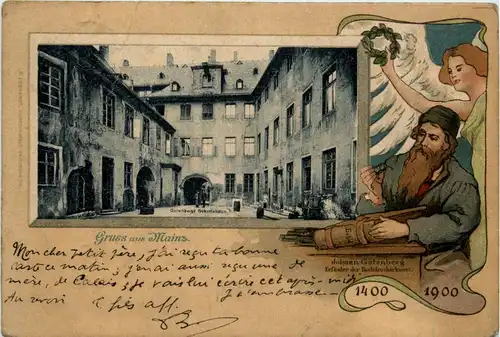 Gutenbergs Geburtshaus.
Gruss aus Mainz.
Johann Gutenberg
Erfinder der Buchdruckerkunst.
1400 1900
Mon cher petit frère, j'ai reçu ta bonne
carte ce matin; j'ai aussi reçu une de
mère, de Calais; je vais lui écrire cet après-midi
Au revoir t je t'embrasse